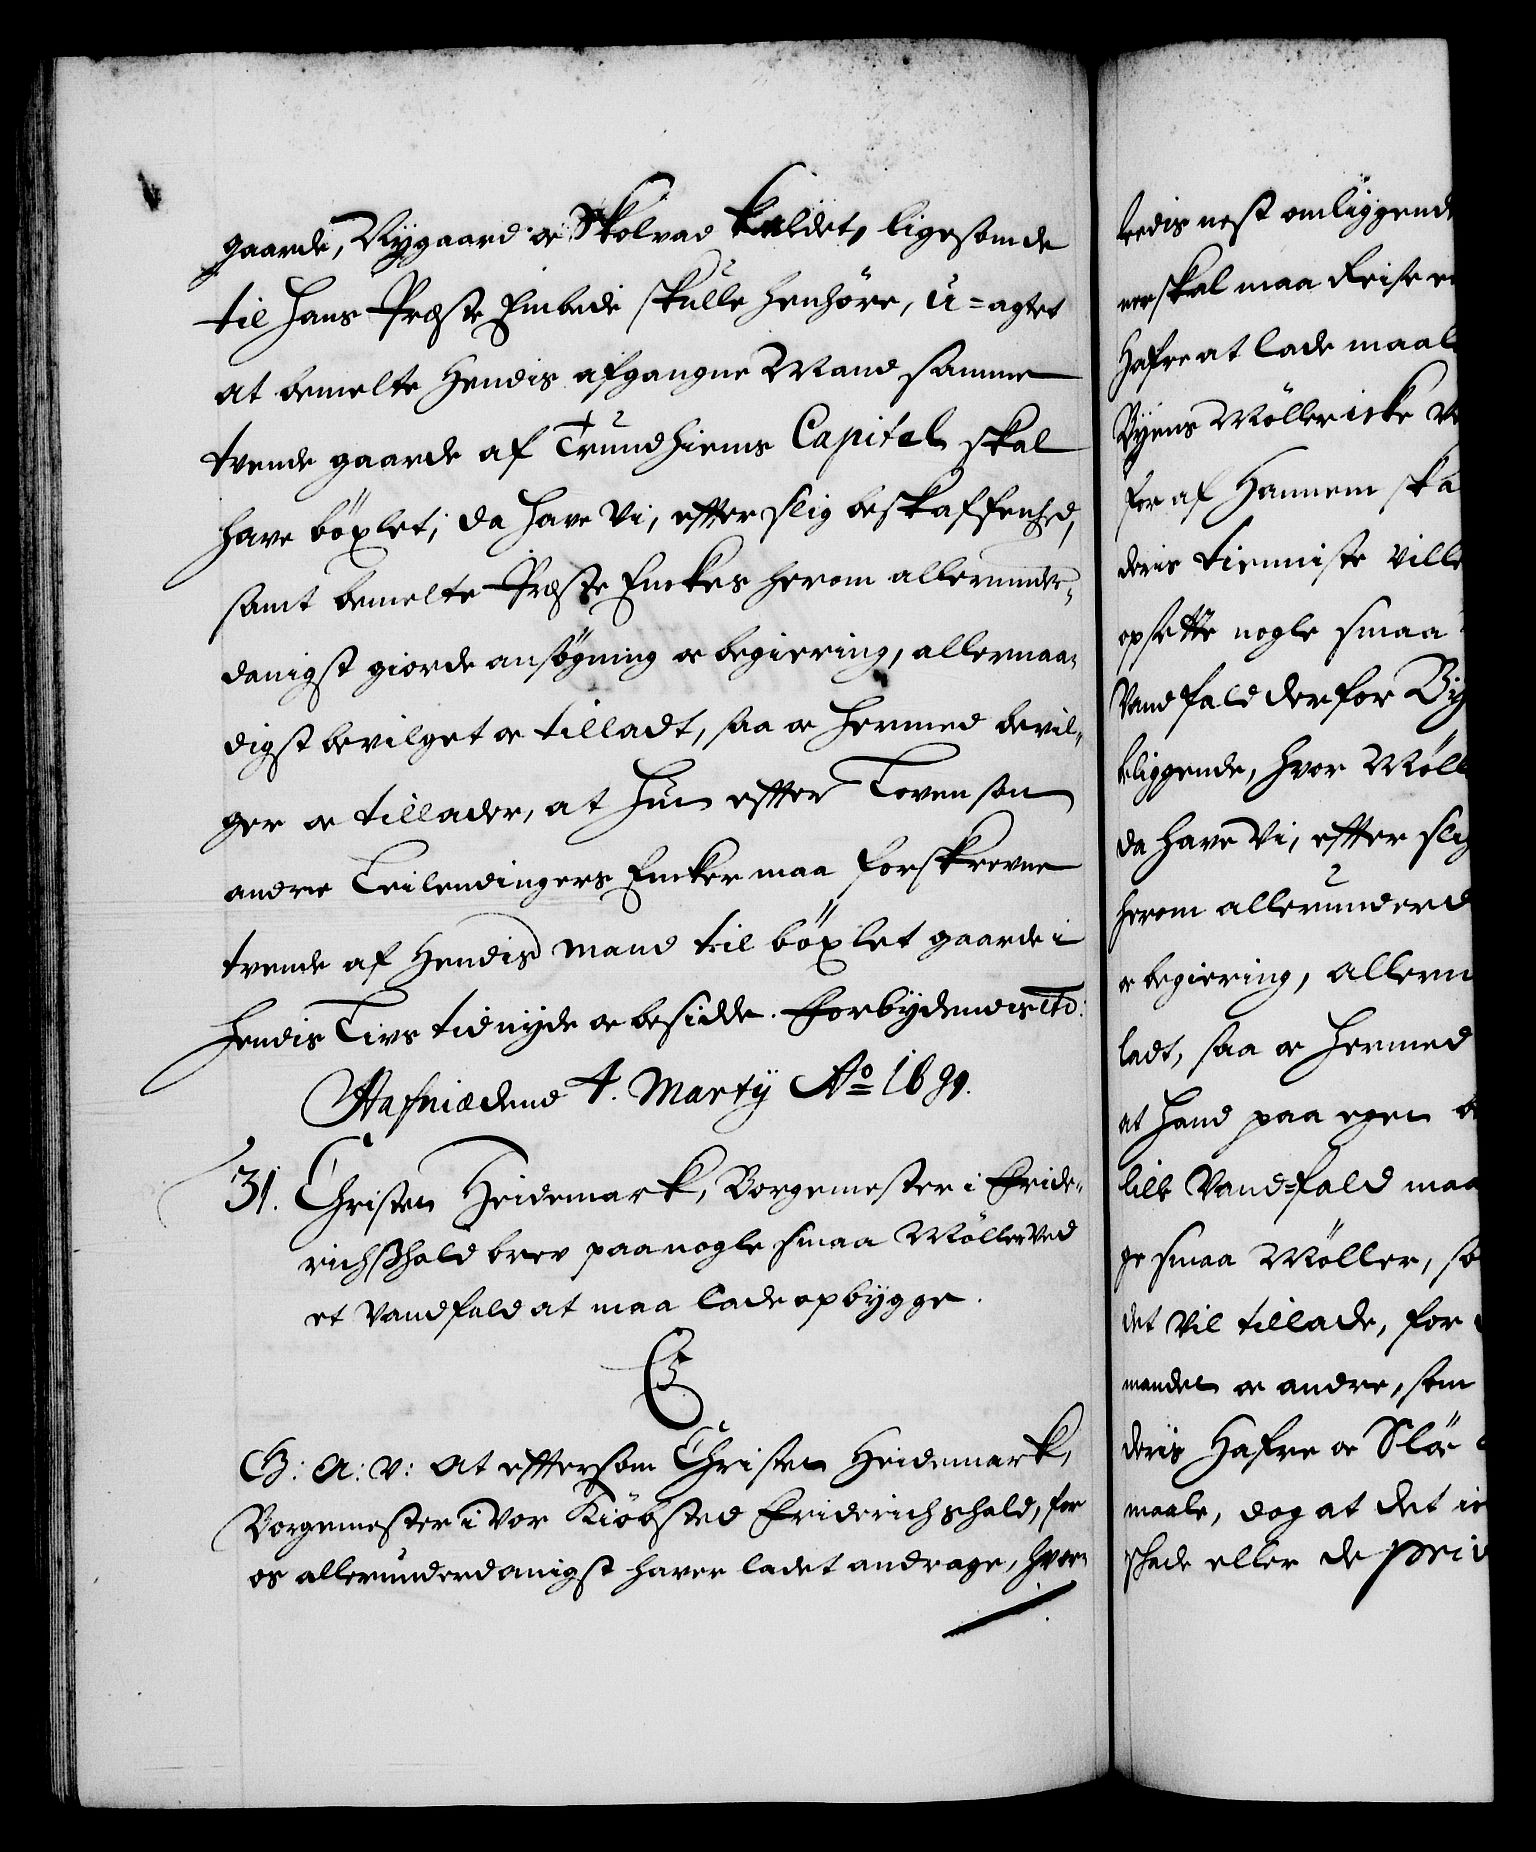 gaarde, Nygaard oc Skolvad kaldet, ligesom de
til hans Præste Embede skulle henhöre, u=agtet
at bemelte Hendis afgangne Mand samme
tvende gaarde af Trundhiems Capitel skal
have böxlet; da have Vi, effter slig beskaffenhed,
samt bemelte Præste Enckes herom allerunder-
danigst giorde ansögning oc begiering, allernaa-
digst bevilget oc tilladt, saa oc hermed bevil-
ger oc tillader, at hun effter Loven som
andre Leilendingers Encker maa forskrevne
tvende af Hendis Mand til böxlet gaarde i
hendis Livs tid nyde oc besidde. Forbydendis etc:
Hafniæ dend 4. Martij Ao 1691.
31. Christen Heidemark, Borgemester i Fride-
richshald brev paa nogle smaa Möller ved
et Vandfald at maa lade opbygge.
C5
G: A: V: At effersom Christen Heidemark,
Borgemester i vor Kiöbsted Friderichshald, for
os allerunderdanigst haver ladet andrage, hvor-
ledis nest omliggende
nerskal maa Reise
Hafre at lade maale
Byens Möller icke
for af Hannem ska
deris tienniste ville
opsette nogle smaa
Vandfald derfor By
beliggende, hvor Möll
da have Vi, effter slig
herom allerunderd
oc begiering, allern
ladt, saa oc hermed
at hand paa egen
lille Vand=fald maa
ge smaa Möller, so
det vil tillade, for
manden oc andre, som
deris Hafre oc
maale, dog at det ic
skade eller de priv